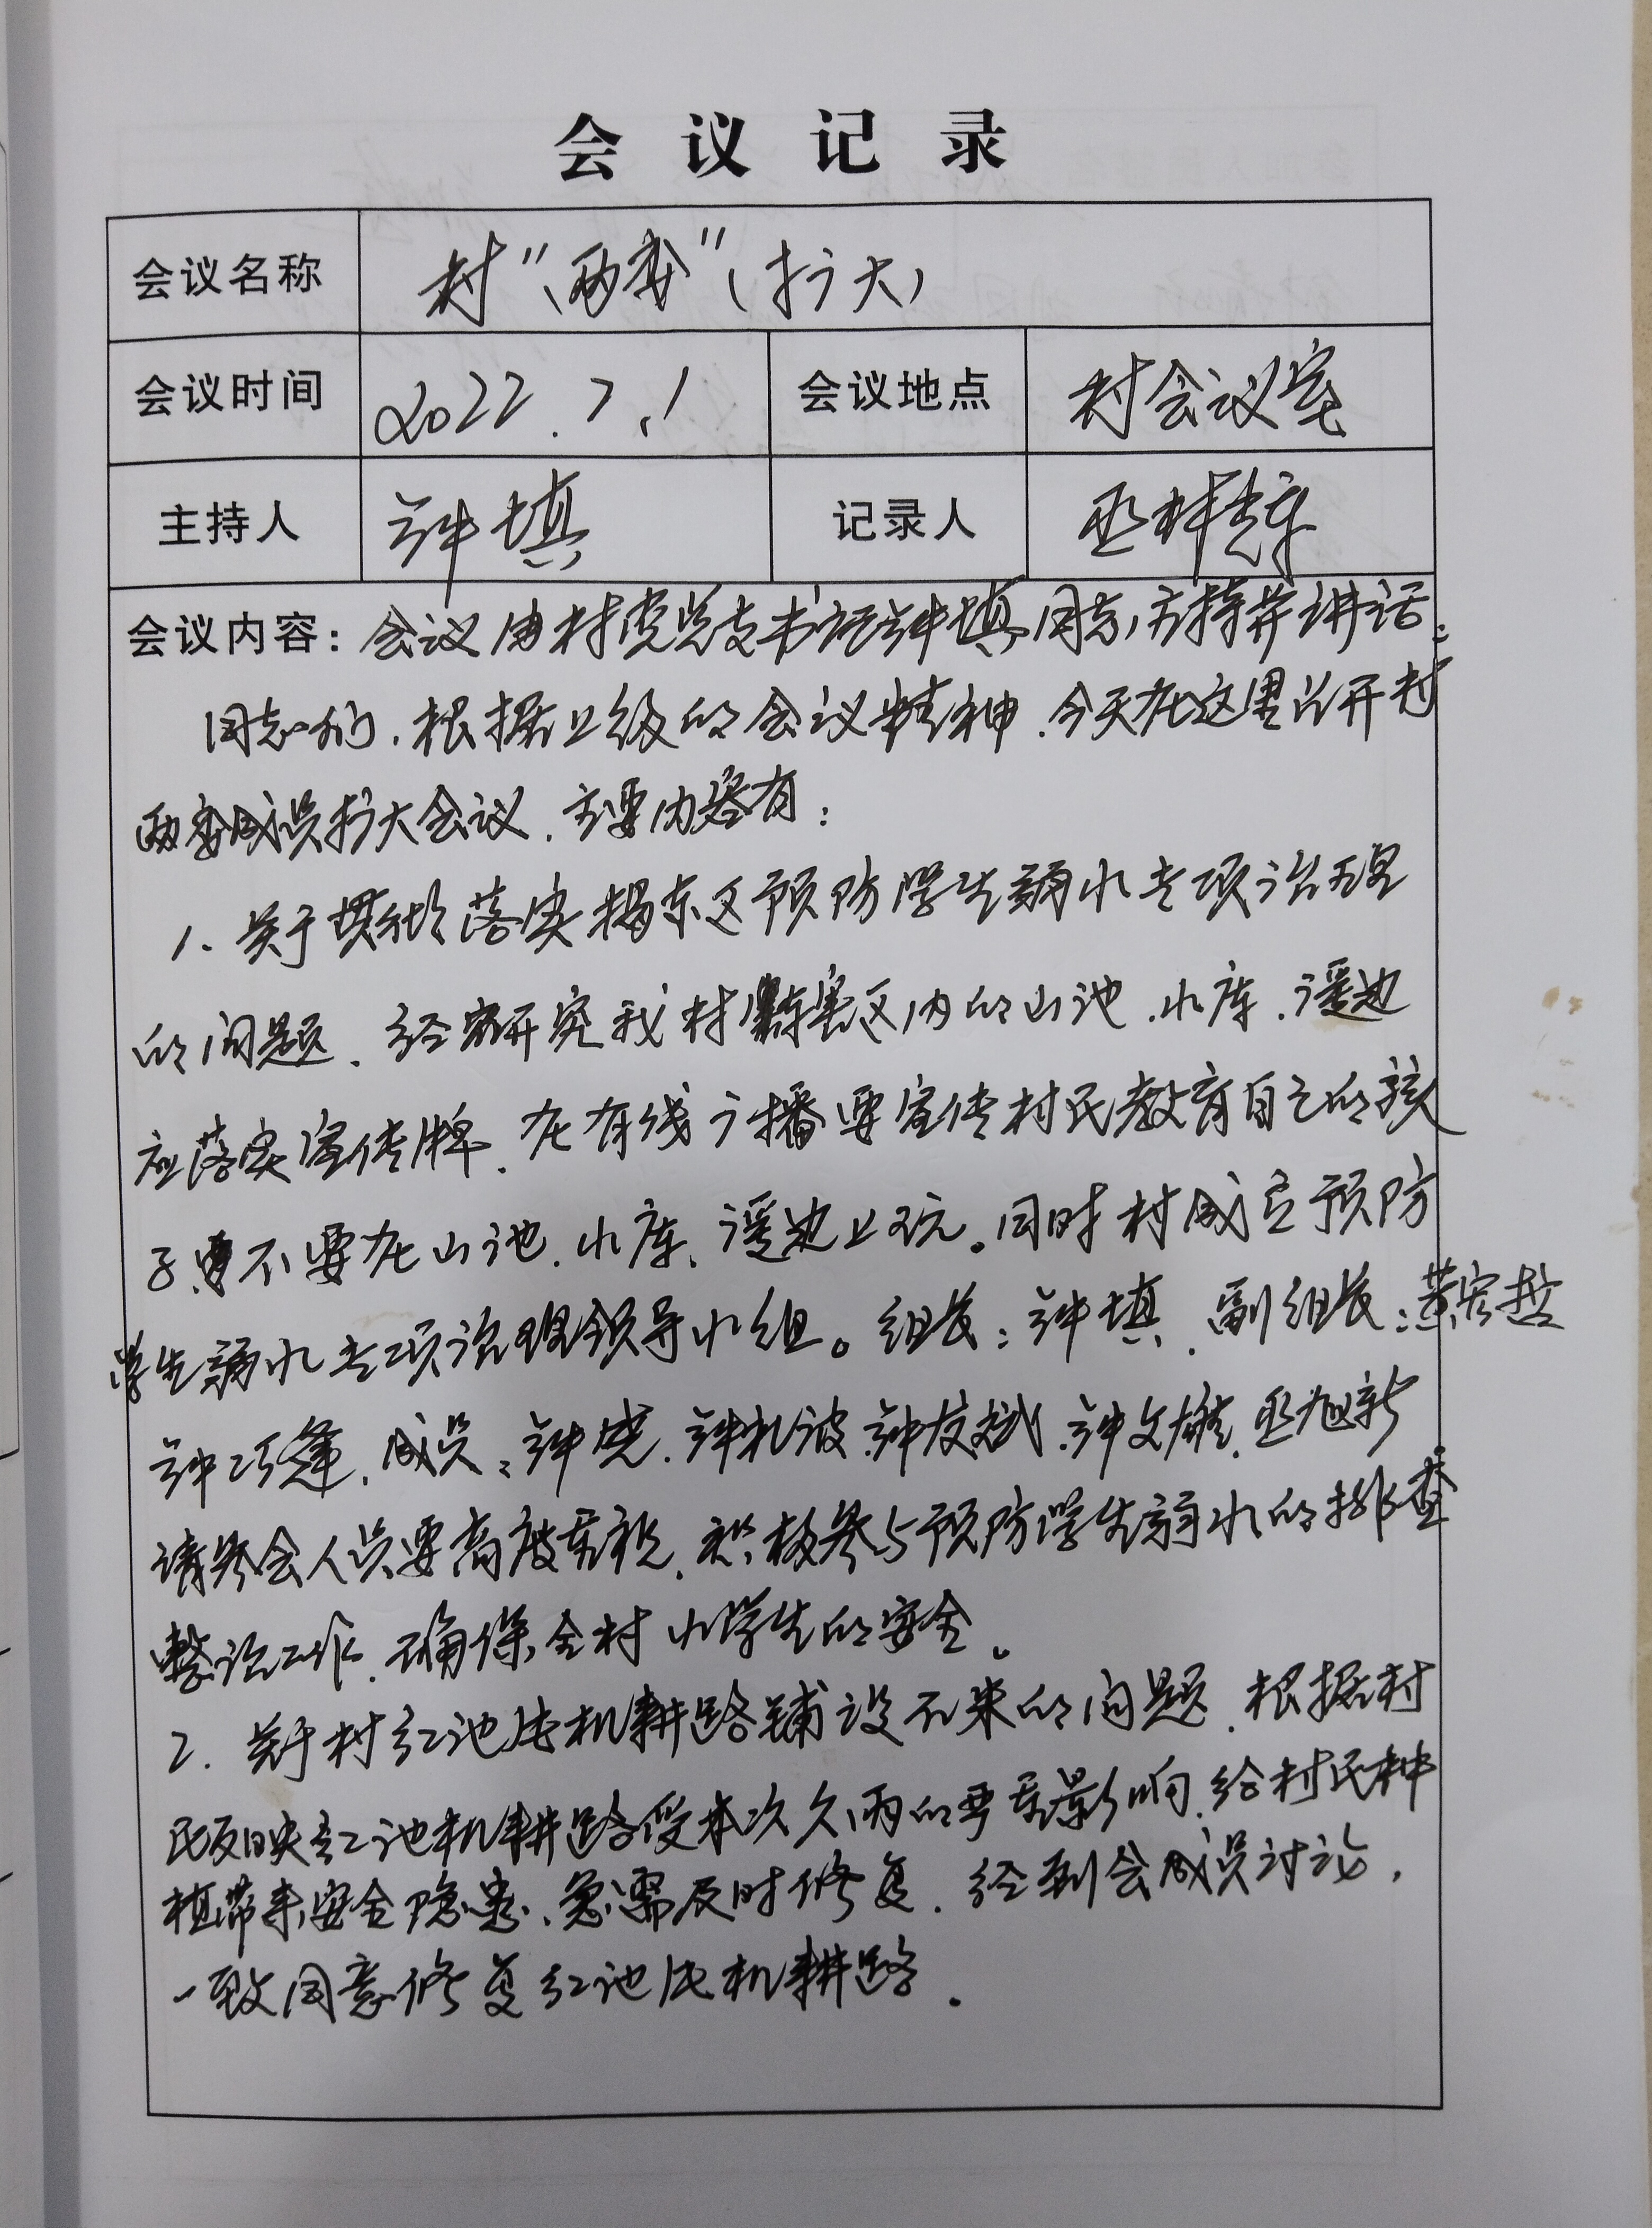 会议记录
会议名称 村“两委”(扩大)
会议时间 2022.7.1 会议地点 村会议室
主持人 钟填 记录人 丞
会议内容:会议由村党总支书记钟填同志主持并讲话:
同志们,根据上级的会议精神,今天在这里召开村
两委成员扩大会议,主要内容有:
1、关于贯彻落实揭东区预防学生溺水专项治理
的问题、经研究我村区内的山池、水库、边
应落实宣传牌,在有线广播要宣传村民教育自己的孩
子不要在山池、水库、边上玩。同时村成立预防
学生溺水专项治理领导小组。组长:钟填、副组长:黄宏哲
钟巧逢、成员:钟、钟波、钟友斌、钟文雄、丞旭新
请参会人员要高度重视,积极参与预防学生溺水的排查
整治工作,确保全村小学生的安全。
2、关于村红池片机耕路铺设不来的问题,根据村
民反映红池机耕路受本次久雨的严重影响,给村民种
植带来安全隐患、急需及时修复,经到会成员讨论,
一致同意修复红池片机耕路。